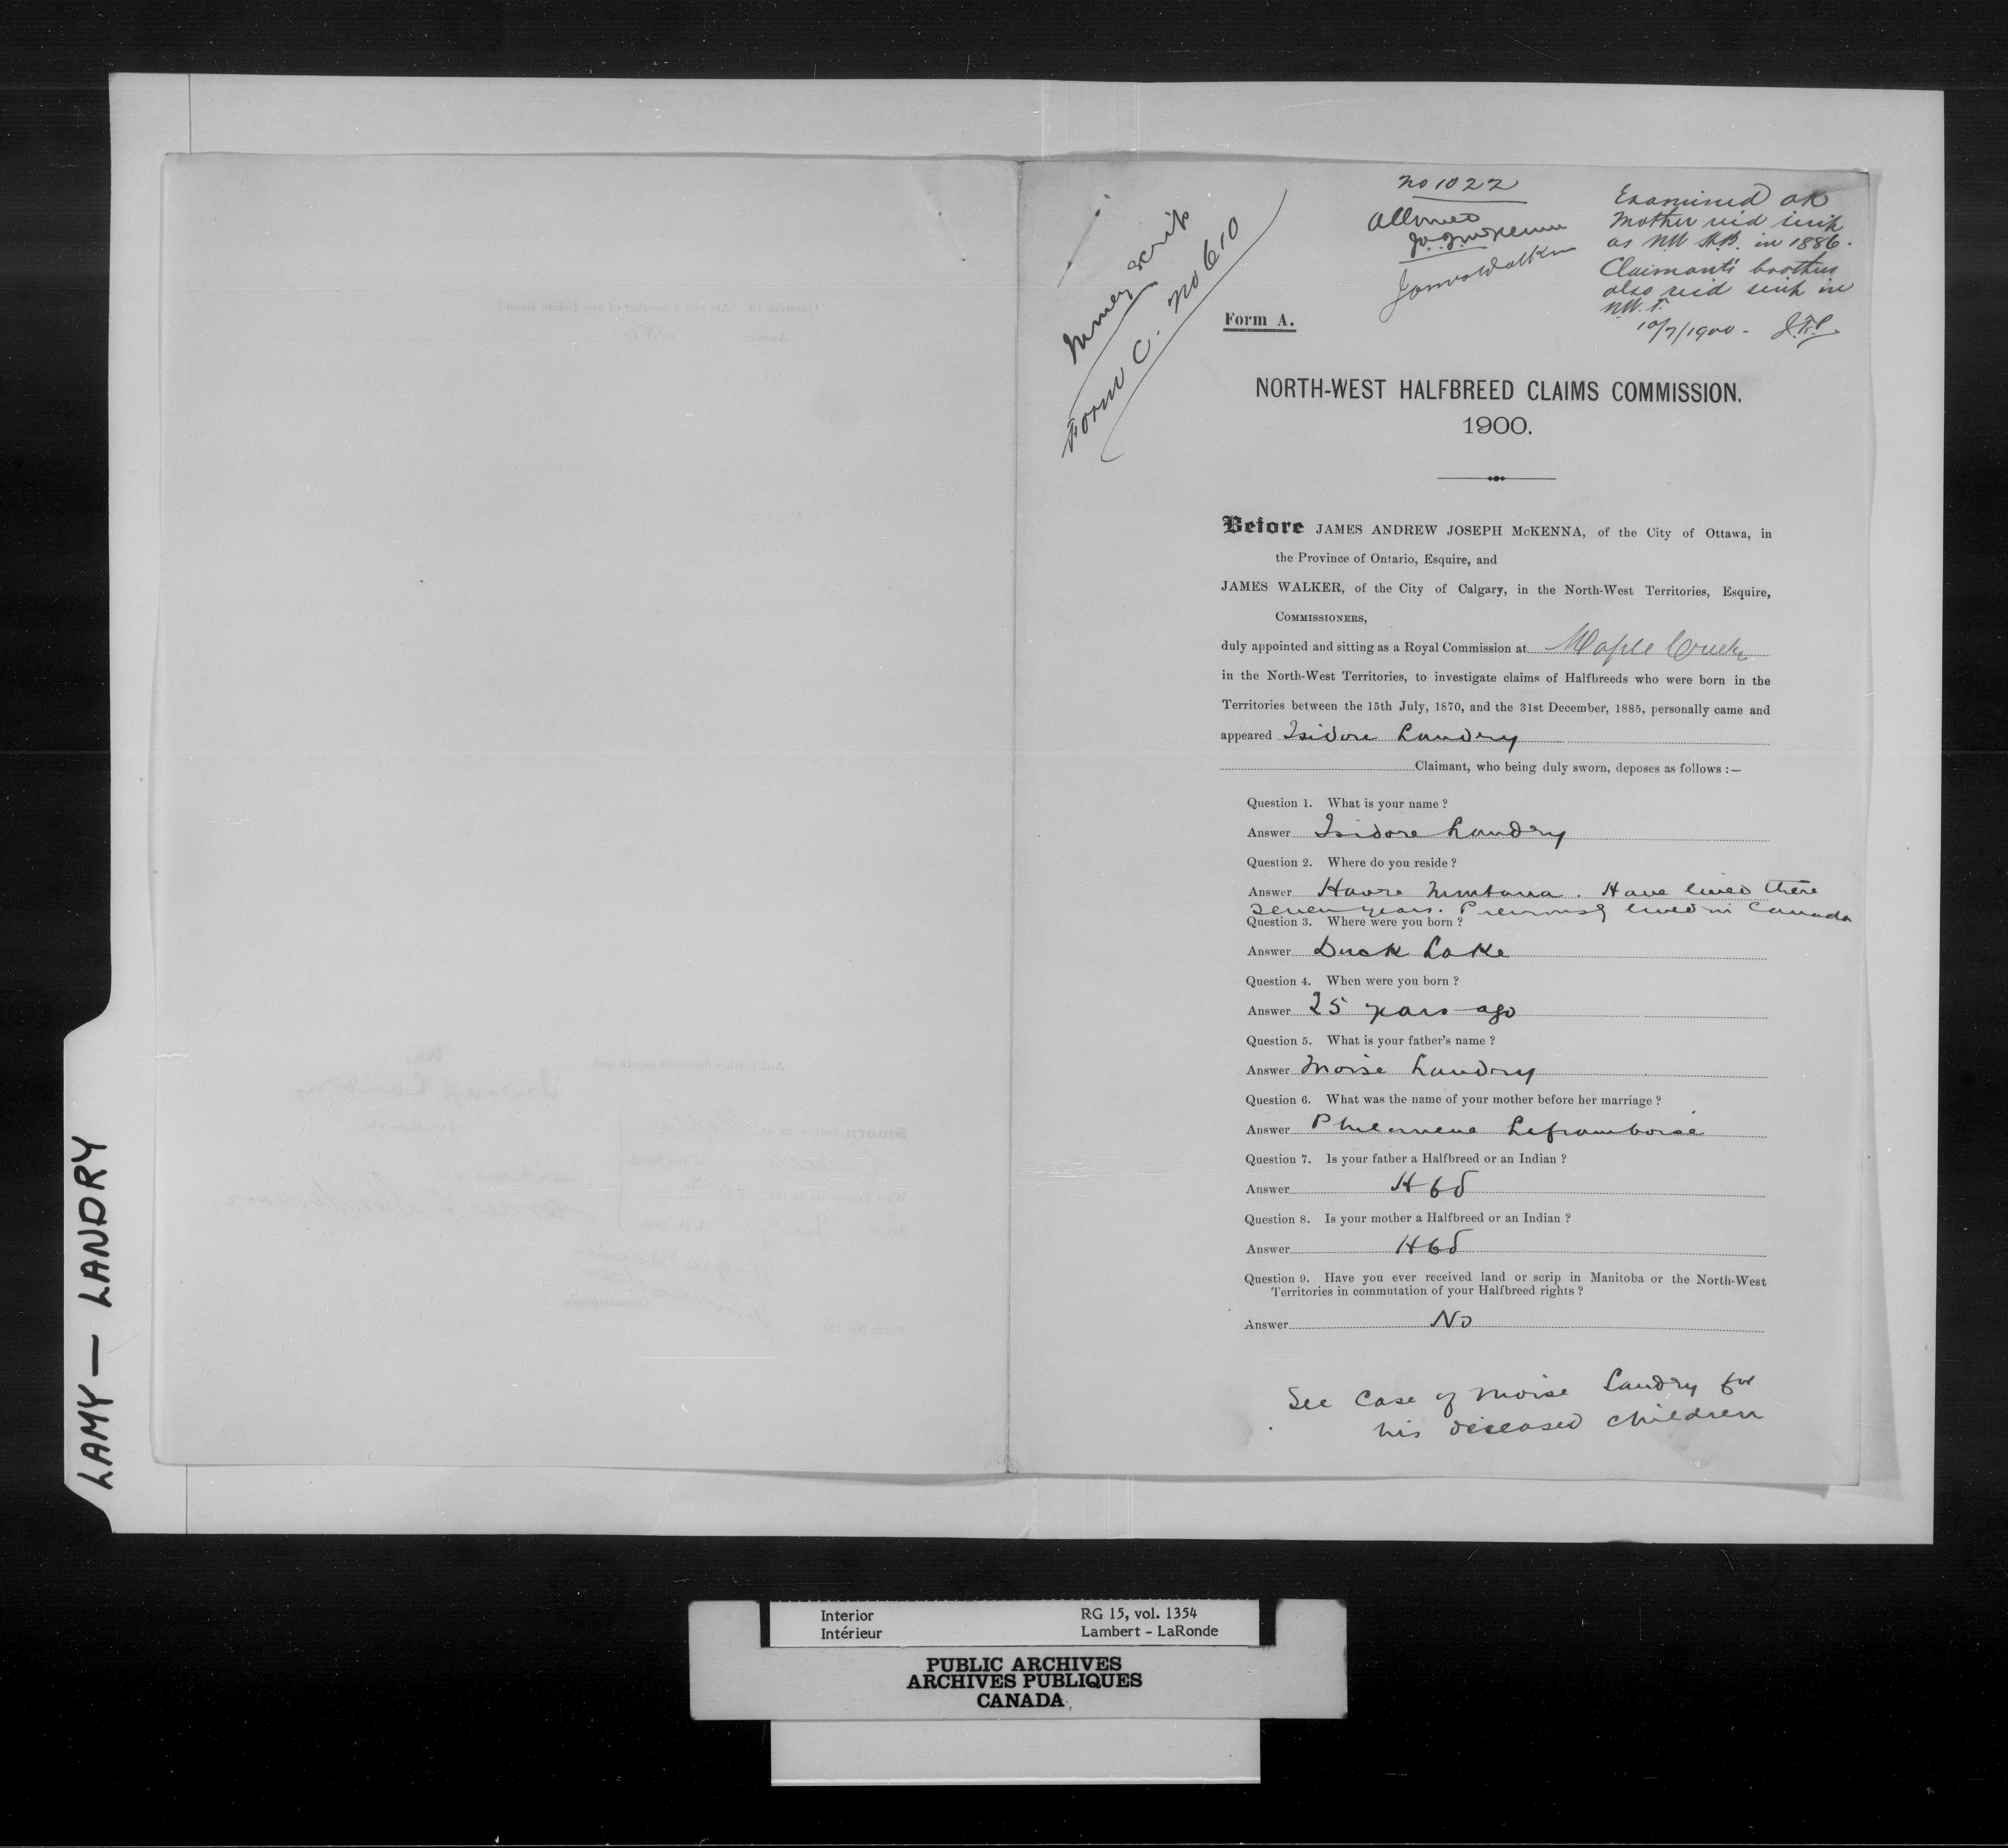 no 1022
Allowed
J. A. J. McKenna
James Walker
Examined OK
Mother rec'd scrip
as NW H.B. in 1886.
Claimant's brothers
also rec'd scrip in
NW. T.
10/7/1900 -
Money scrip
Form C. No 610
Form A.
NORTH-WEST HALFBREED CLAIMS COMMISSION.
1900.
Before JAMES ANDREW JOSEPH McKENNA, of the City of Ottawa, in
the Province of Ontario, Esquire, and
JAMES WALKER, of the City of Calgary, in the North-West Territories, Esquire,
COMMISSIONERS,
duly appointed and sitting as a Royal Commission at Maple Creek
in the North-West Territories, to investigate claims of Halfbreeds who were born in the
Territories between the 15th July, 1870, and the 31st December, 1885, personally came and
appeared Isidore Landry
Claimant, who being duly sworn, deposes as follows :—
Question 1. What is your name ?
Answer Isidore Landry
Question 2. Where do you reside ?
Answer Havre Montana. Have lived there
seven years. Previously lived in Canada
Question 3. Where were you born ?
Answer Duck Lake
Question 4. When were you born ?
Answer 25 years ago
Question 5. What is your father's name ?
Answer Moise Landry
Question 6. What was the name of your mother before her marriage ?
Answer Philomene Laframboise
Question 7. Is your father a Halfbreed or an Indian ?
Answer Hbd
Question 8. Is your mother a Halfbreed or an Indian ?
Answer Hbd
Question 9. Have you ever received land or scrip in Manitoba or the North-West
Territories in commutation of your Halfbreed rights ?
Answer No
See case of Moise Landry for
his deceased children
LAMY — LANDRY
Interior RG 15, vol. 1354
Intérieur Lambert - LaRonde
PUBLIC ARCHIVES
ARCHIVES PUBLIQUES
CANADA